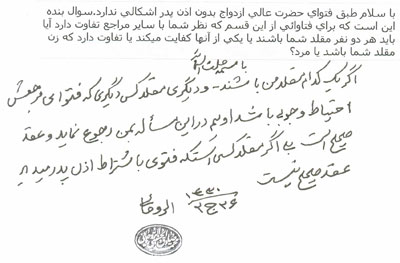 با سلام طبق فتواي حضرت عالي ازدواج بدون اذن پدر اشكالي ندارد.سوال بنده
اين است كه براي فتاوائي از اين قسم كه نظر شما با ساير مراجع تفاوت دارد آيا
بايد هر دو نفر مقلد شما باشند يا يكي از آنها كفايت ميكند يا تفاوت دارد كه زن
مقلد شما باشد يا مرد؟
باسمه جلت اسمائه
اگر یک کدام مقلد من باشند - و دیگری مقلد کسی دیگری که فتوای مرجعش
احتیاط وجوبی باشد او هم در این مسأله بمن رجوع نماید و عقد
صحیح است بلی اگر مقلد کسی استکه فتوی باشتراط اذن پدر میدهد
عقد صحیح نیست
۱۴۳۰
۲۶ ج ۲
الروحانی